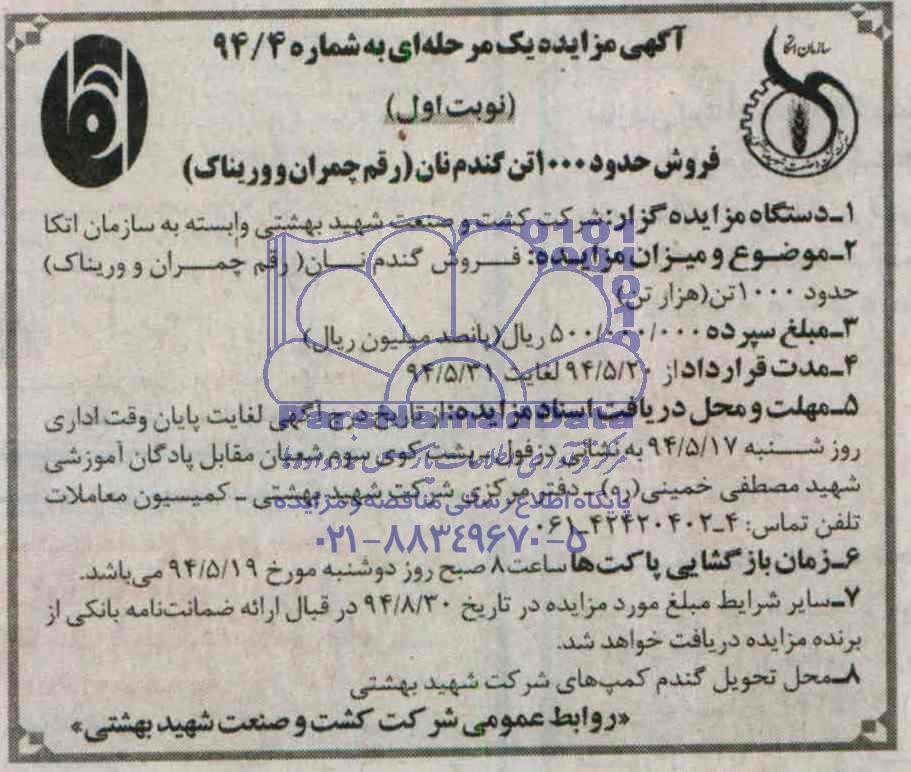 سازمان اتکا
آگهی مزایده یک مرحله‌ای به شماره ۹۴/۴
(نوبت اول)
فروش حدود ۱۰۰۰تن گندم نان (رقم چمران و وریناک)
۱ـدستگاه مزایده گزار: شرکت کشت و صنعت شهید بهشتی وابسته به سازمان اتکا
۲ـموضوع و میزان مزایده: فروش گندم نان( رقم چمران و وریناک)
حدود ۱۰۰۰تن(هزار تن)
۳ـمبلغ سپرده ۵۰۰/۰۰۰/۰۰۰ ریال(پانصد میلیون ریال)
۴ـمدت قرارداد از ۹۴/۵/۲۰ لغایت ۹۴/۵/۳۱
۵ـمهلت و محل دریافت اسناد مزایده: از تاریخ درج آگهی لغایت پایان وقت اداری
روز شنبه ۹۴/۵/۱۷ به نشانی دزفول ـ پشت کوی سوم شعبان مقابل پادگان آموزشی
شهید مصطفی خمینی(ره) ـ دفتر مرکزی شرکت شهید بهشتی ـ کمیسیون معاملات
تلفن تماس: ۴ـ۴۲۴۲۰۴۰۲ـ۰۶۱
۶ـزمان بازگشایی پاکت‌ها ساعت۸ صبح روز دوشنبه مورخ ۹۴/۵/۱۹ می‌باشد.
۷ـسایر شرایط مبلغ مورد مزایده در تاریخ ۹۴/۸/۳۰ در قبال ارائه ضمانت‌نامه بانکی از
برنده مزایده دریافت خواهد شد.
۸ـمحل تحویل گندم کمپ‌های شرکت شهید بهشتی
«روابط عمومی شرکت کشت و صنعت شهید بهشتی»
ParsNamadData
پایگاه اطلاع رسانی مناقصه و مزایده
۰۲۱-۸۸۳۴۹۶۷۰-۵